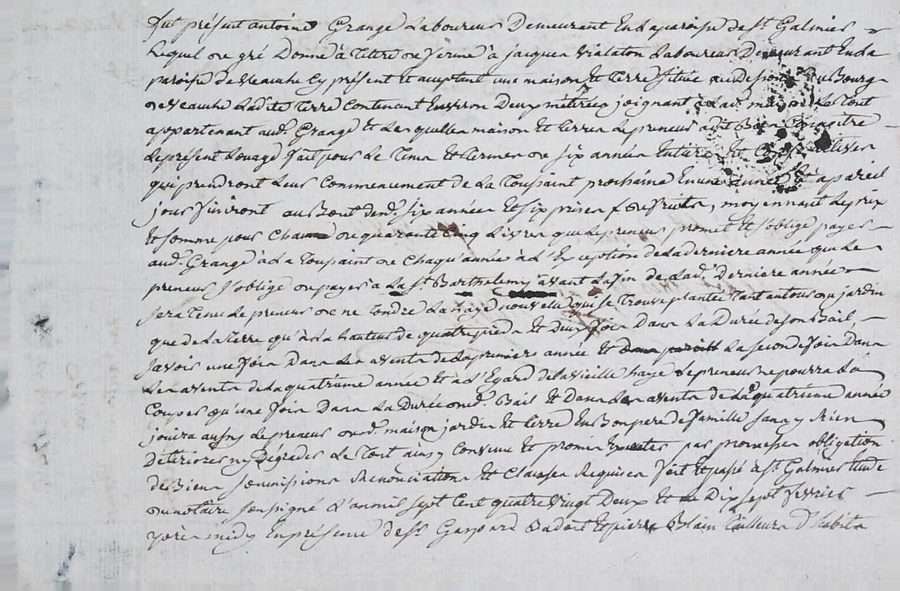 fut présent antoine Grange Laboureur Demeurant En La paroisse de St. Galmier
Lequel de gré Donne à titre de ferme à jacques Vialaton Laboureur Demeurant En La
paroisse de Veauche Cy présent et acceptant une maison Et Terre située au dessous du Bourg
de Veauche Ladite Terre Contenant Environ Deux métrées joignant à Lad. maison Le Tout
appartenant aud. Grange et Lesquelles maison Et terre Le preneur a dit Bien Connoitre
Le présent Louage fait pour Le Tems Et terme de six années Entières Et
que prendront Leur Commencement de La Toussaint prochaine En une année Et a pareil
jour finiront au Bout de six années Et six prises fruits, moyennant Le prix
Et somme pour Chacune de quarante Cinq Livres que Le preneur promet Et s'oblige payer
aud. Grange à La Toussaint de Chaqu'année à L'Exception de La derniere année que Le
preneur s'oblige de payer à La St. Barthelemy avant La fin de Lad. Derniere année
sera Tenu Le preneur de ne Tondre La haye nouvelle qui se Trouve plantée Tant autour du jardin
que de La Terre qu'à La hauteur de quatre pieds Et deux fois Dans La Durée de son Bail,
savoir une fois Dans Les avents de La premiere année Et La seconde fois Dans
Les avents de La quatrième année Et à L'Egard de La vieille haye Le preneur ne pourra La
Couper qu'une fois Dans La Durée dud. Bail Et Dans Les avents de La quatrième année
jouira aussy Le preneur desd. maison jardin Et terre En Bon pere de famille sans y Rien
Détériorer ny Dégrader Le Tout ainsy Convenu Et promis Executer par promesses obligation
de Biens soumissions Renonciations Et Clauses Requises fait Et passé à St. Galmier Etude
du notaire soussigné L'an mil sept Cent quatre vingt Deux Et Le Dix sept fevrier
après midy En présence de Sr. Gaspard Badoit Et pierre Blain Tailleurs D'habits